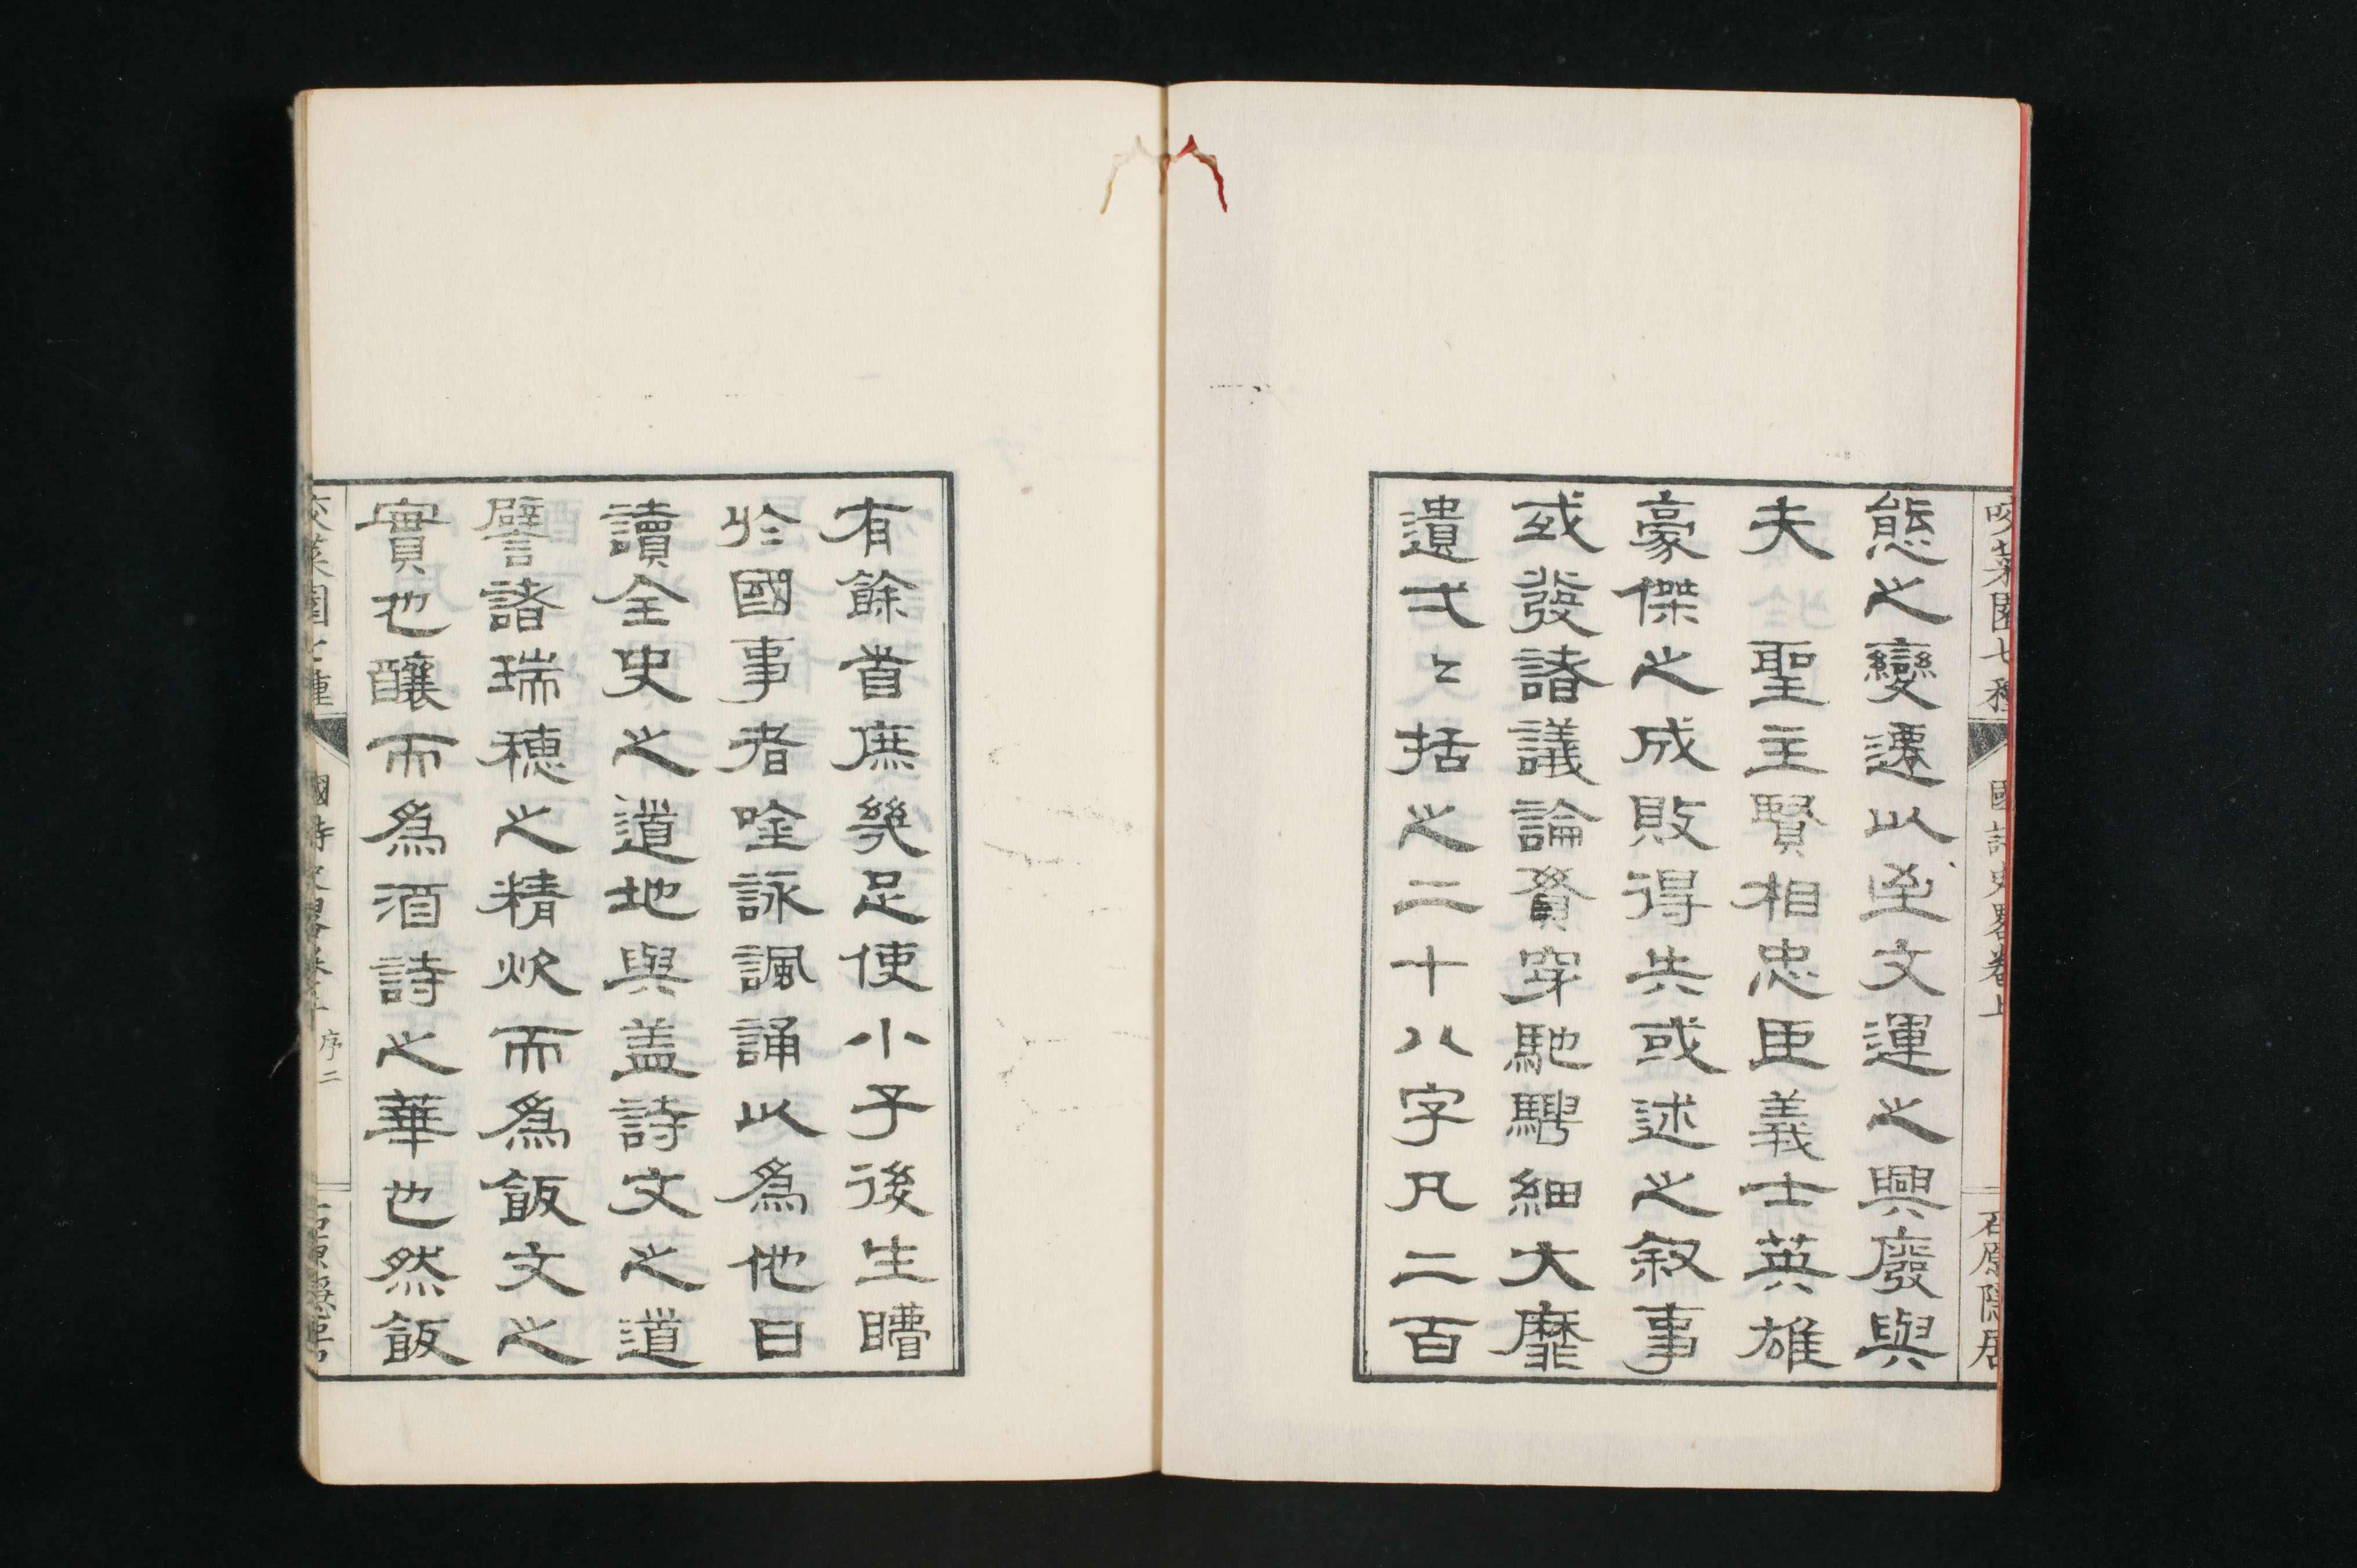 咬菜園七種 國詩史畧卷上 石原隱居
態之變遷以至文運之興廢與
夫 聖主賢相忠臣義士英雄
豪傑之成敗得失或述之叙事
或發諸議論貫穿馳騁細大靡
遺弌〻括之二十八字凡二百
有餘首庶幾足使小子後生瞢
於國事者唫詠諷誦以爲他日
讀全史之道地與盖詩文之道
譬諸瑞穗之精炊而爲飯文之
實也釀而爲酒詩之華也然飯
咬菜園七種 國詩史畧卷上 序二 石原隱居